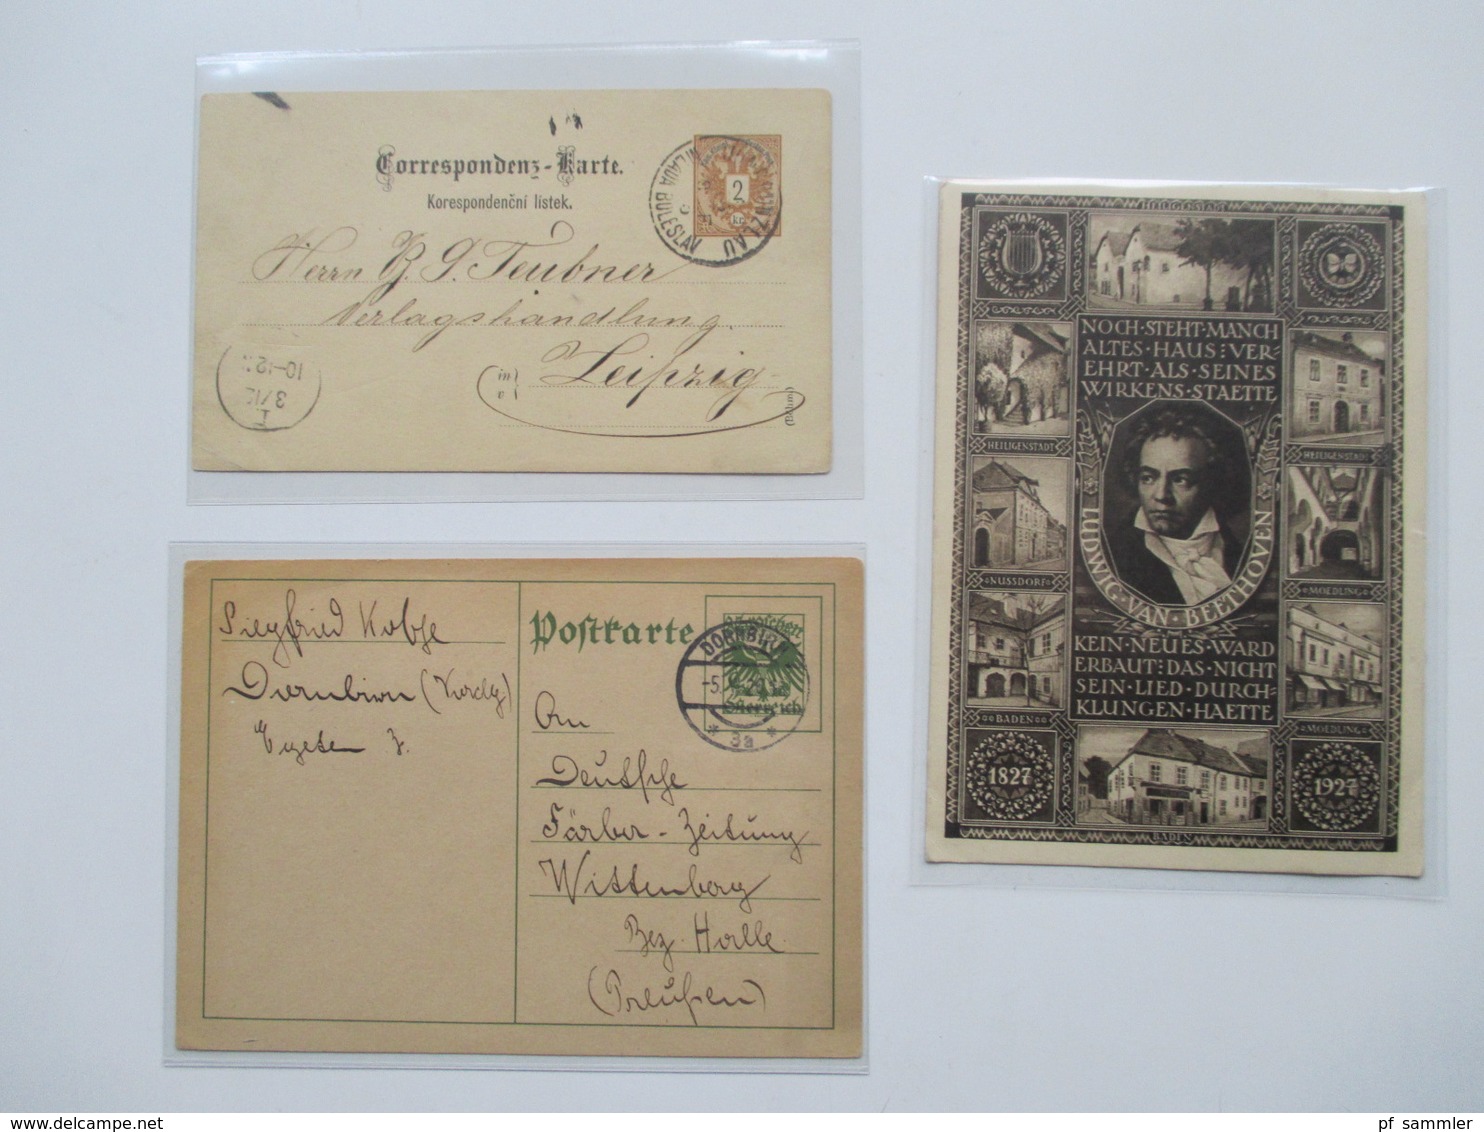 Correspondenz-Karte.
Korespondenční lístek.
2
kr
MLADA BOLESLAV
Herrn B. G. Teubner
Verlagshandlung
Leipzig
in
v
(Böhm.)
3/12
Siegfried
Dornbirn
Postkarte
DORNBIRN
3a
Österreich
An
Deutsche
Färber-Zeitung
Wittenberg
Bez. Halle
(Preußen)
HEILIGENSTADT
NOCH·STEHT·MANCH
ALTES·HAUS:VER-
EHRT·ALS·SEINES
WIRKENS·STAETTE
HEILIGENSTADT
HEILIGENSTADT
LUDWIG·VAN·BEETHOVEN
NUSSDORF
MOEDLING
KEIN·NEUES·WARD
ERBAUT:DAS·NICHT
SEIN·LIED·DURCH-
KLUNGEN·HAETTE
BADEN
MOEDLING
1827
1927
BADEN
pf_sammler